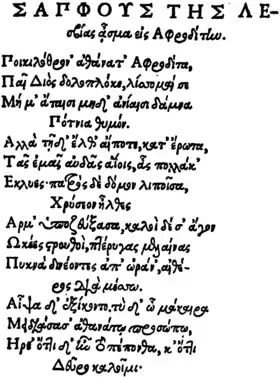 ΣΑΠΦΟΥΣ ΤΗΣ ΛΕ-
σβίας ᾆσμα εἰς Αφροδίτω.
Ποικιλόθρον' ἀθάνατ' Αφροδίτα,
Παῖ Διὸς δολοπλόκε, λίσσομαί σε
Μή μ' ἄταισι μηδ' ἀνίαισι δάμνα
Πότνια θυμόν.
Αλλὰ τῇδ' ἔλθ' αἴποτε, κατ' ἔρωτα,
Τᾶς ἐμᾶς αὐδᾶς ἀΐοις, ἃς πολλάκ'
Εκλυες· πατρὸς δὲ δόμον λιποῖσα,
Χρύσεον ἦλθες
Αρμ' ὑποζεύξασα, καλοὶ δέ σ' ἆγον
Ωκέες στρουθοὶ, πτέρυγας μελαίνας
Πυκνὰ δινέοντες ἀπ' ὠράν', αἰθέ-
ρος διὰ μέσσω.
Αἶψα δ' ἐξίκοντο, τὺ δ' ὦ μάκαιρα
Μειδιάσασ' ἀθανάτῳ προσώπῳ,
Ηρε' ὅττι δ' ἦν ὃ πέπονθα, κ' ὅττι
Δεῦρο καλοῖμι·